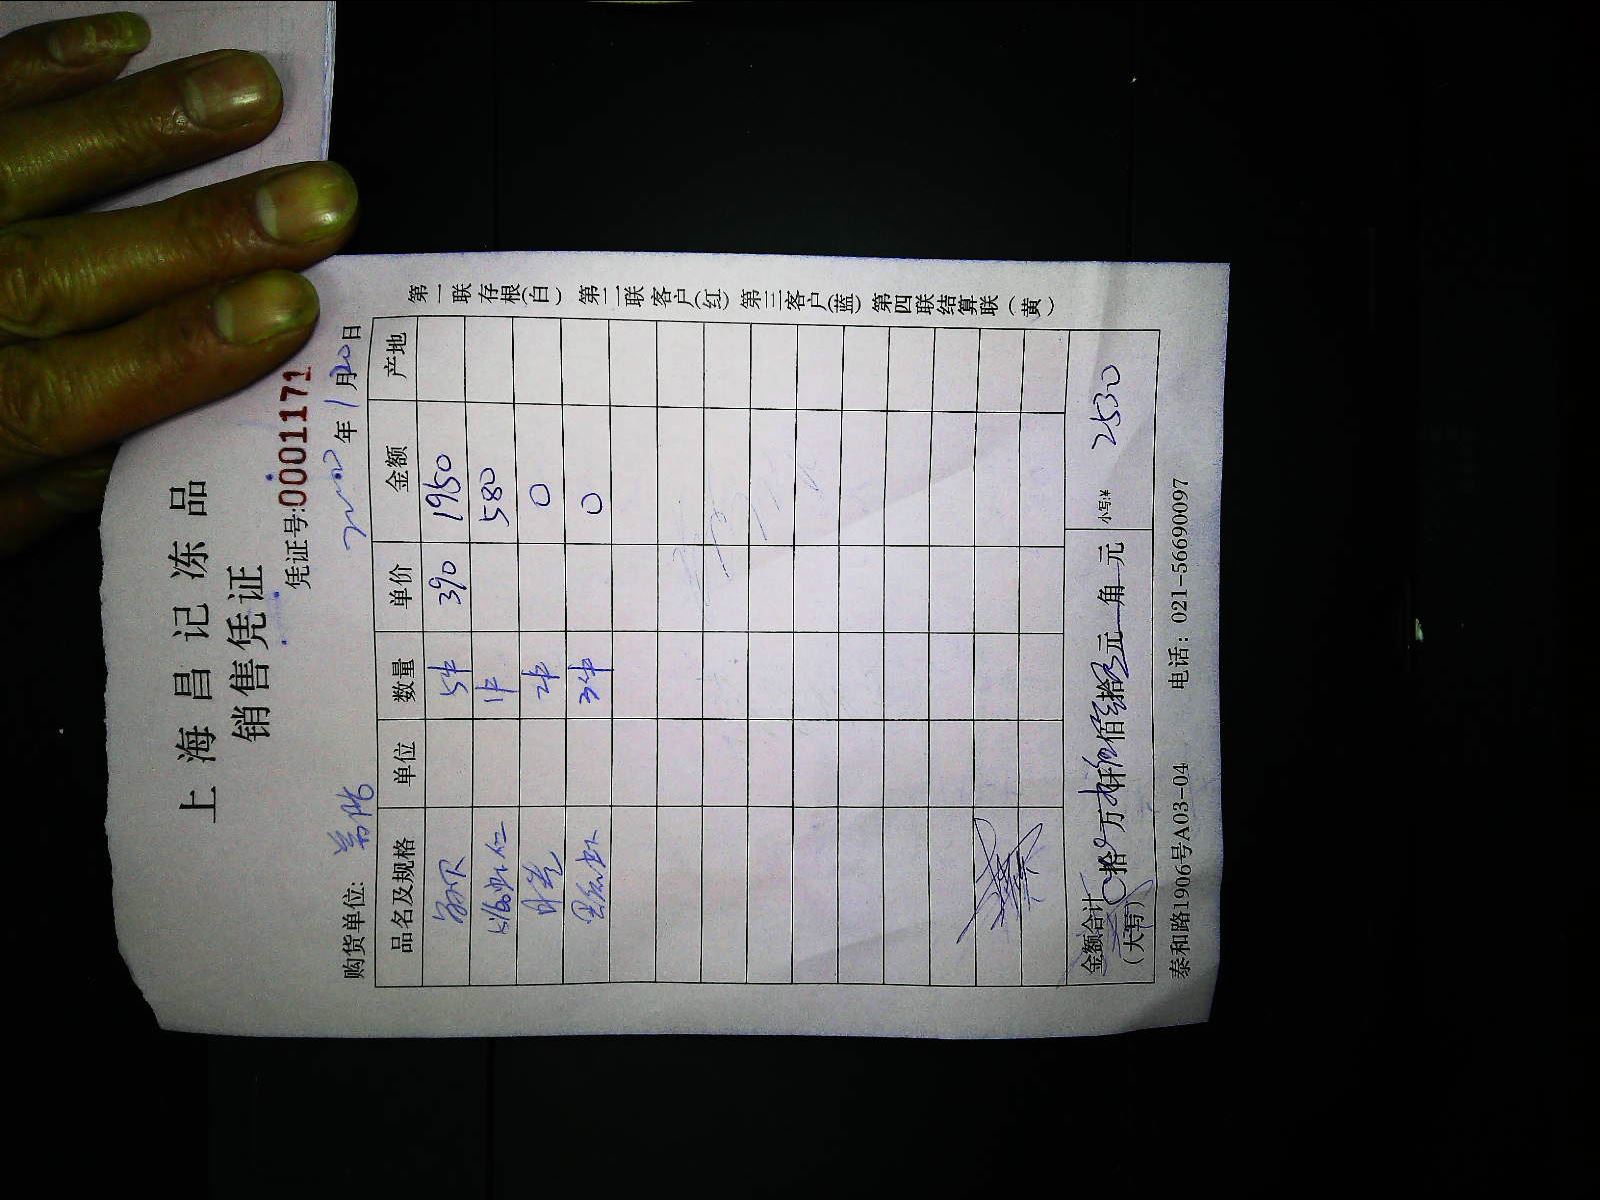 上海昌记冻品
销售凭证
凭证号:0001171
购货单位: 年1月20日
品名及规格 单位 数量 单价 金额 产地
5件 390 1950
51/60虾仁 1件 580
2件 0
3件 0
金额合计(大写) 拾 万 仟 佰 拾 元 角 元 小写:¥ 2530
泰和路1906号A03-04 电话: 021-56690097
第一联存根(白) 第二联客户(红) 第三客户(蓝) 第四联结算联(黄)